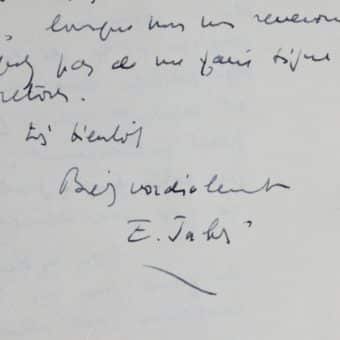 , lorsque nous nous reverrons
pas de me faire signe
retour.
A bientôt
Bien cordialement
E. Jabès